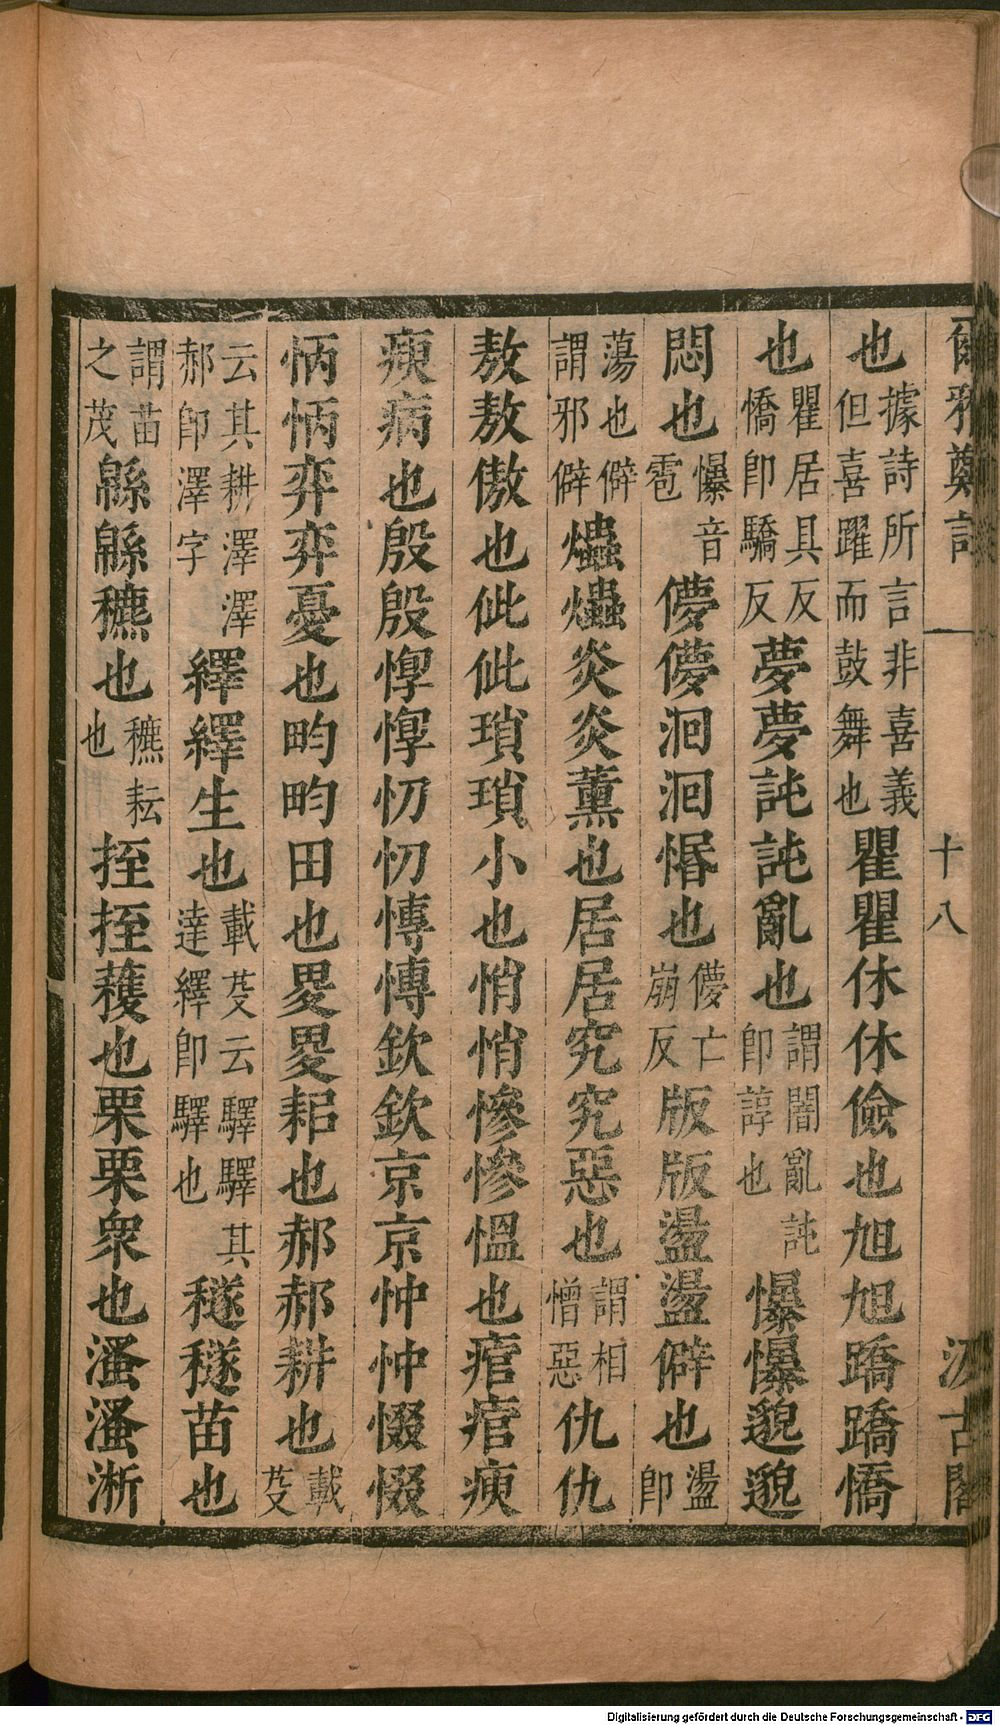 爾雅鄭註
十八
汲古閣
也據詩所言非喜義但喜躍而鼓舞也瞿瞿休休儉也旭旭蹻蹻憍
也瞿居具反憍卽驕反夢夢訰訰亂也謂闇亂訰卽諄也懪懪邈邈
悶也懪音雹儚儚洄洄惛也儚亡崩反版版盪盪僻也盪卽
蕩也僻謂邪僻爞爞炎炎薰也居居究究惡也謂相憎惡仇仇
敖敖傲也佌佌瑣瑣小也悄悄慘慘慍也痯痯瘐
瘐病也殷殷惸惸忉忉慱慱欽欽京京忡忡惙惙
怲怲弈弈憂也畇畇田也畟畟耜也郝郝耕也載芟
云其耕澤澤郝卽澤字繹繹生也載芟云驛驛其達繹卽驛也穟穟苗也
謂苗之茂緜緜穮也穮耘也挃挃穫也栗栗眾也溞溞淅
Digitalisierung gefördert durch die Deutsche Forschungsgemeinschaft - DFG